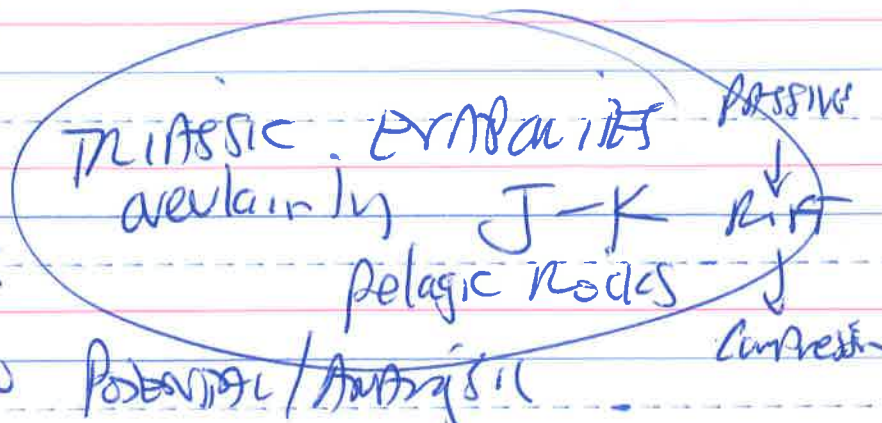 TRIASSIC EVAPORITES
overlain by J-K
pelagic Rocks
PASSIVE
↓
RIFT
↓
Compression
POTENTIAL /